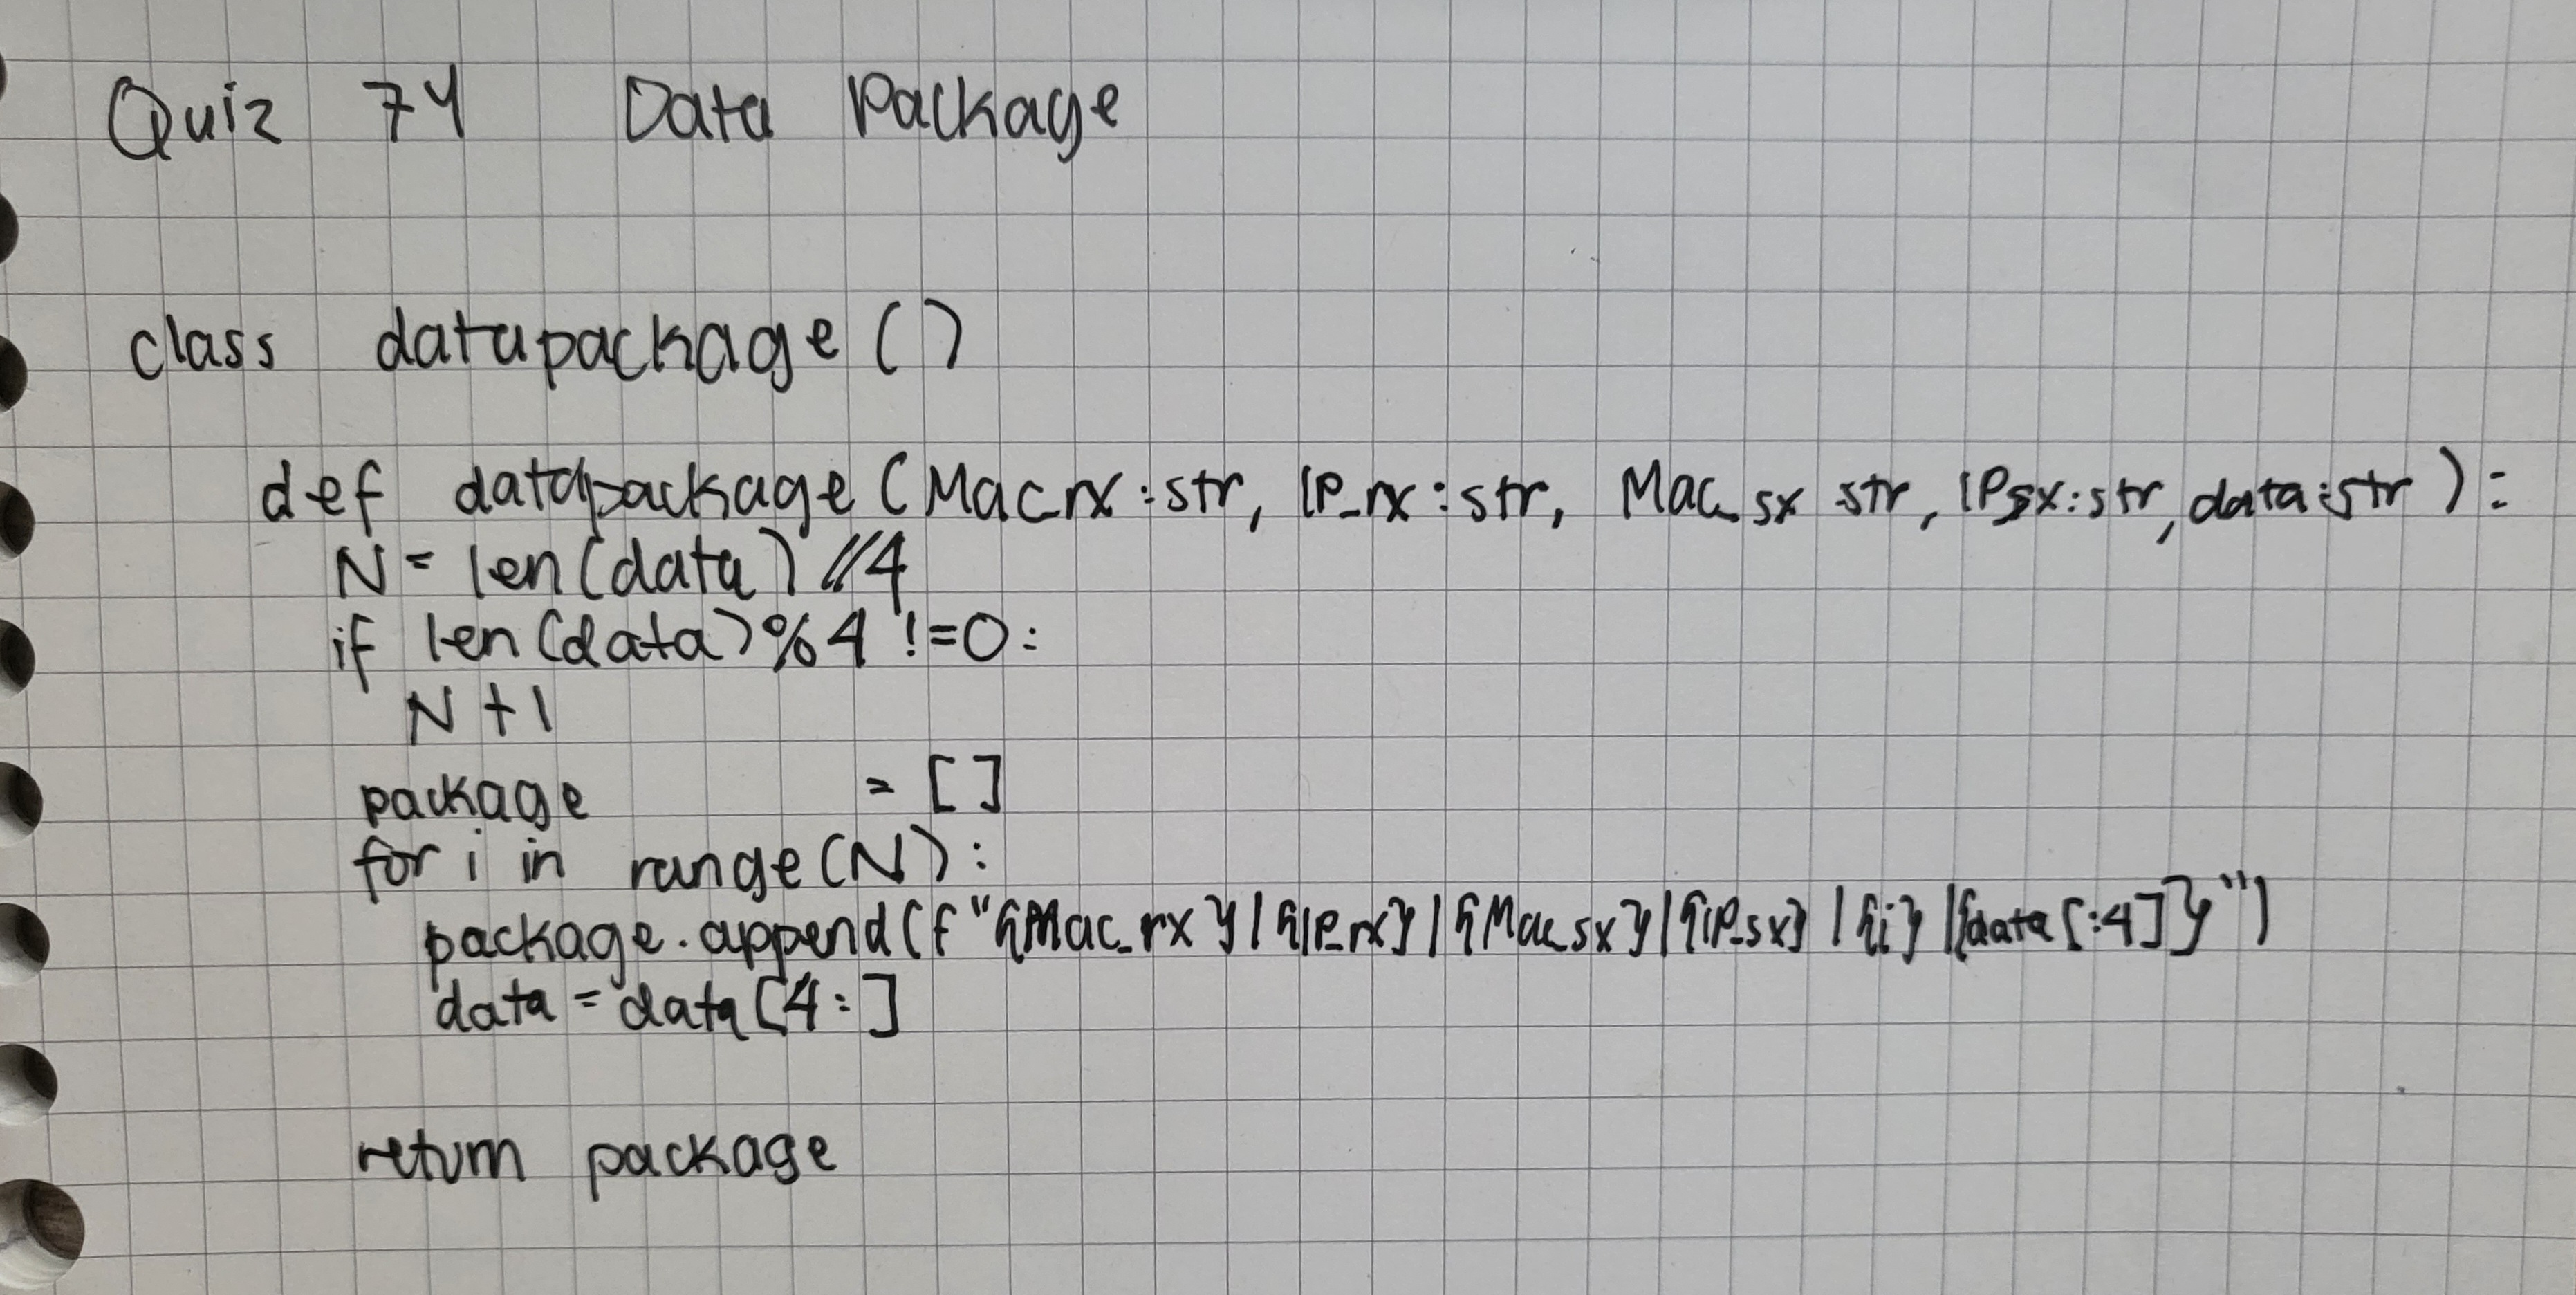 Quiz 74 Data Package
class datapackage ()
def datapackage (Mac_rx :str, IP_rx : str, Mac_sx str, IP_sx:str, data:str ):
N = len(data) //4
if len(data)%4 !=0:
N +1
package = []
for i in range(N):
package.append(f"{Mac_rx}|{IP_rx}|{Mac_sx}|{IP_sx}|{i}|{data[:4]}")
data = data[4:]
return package